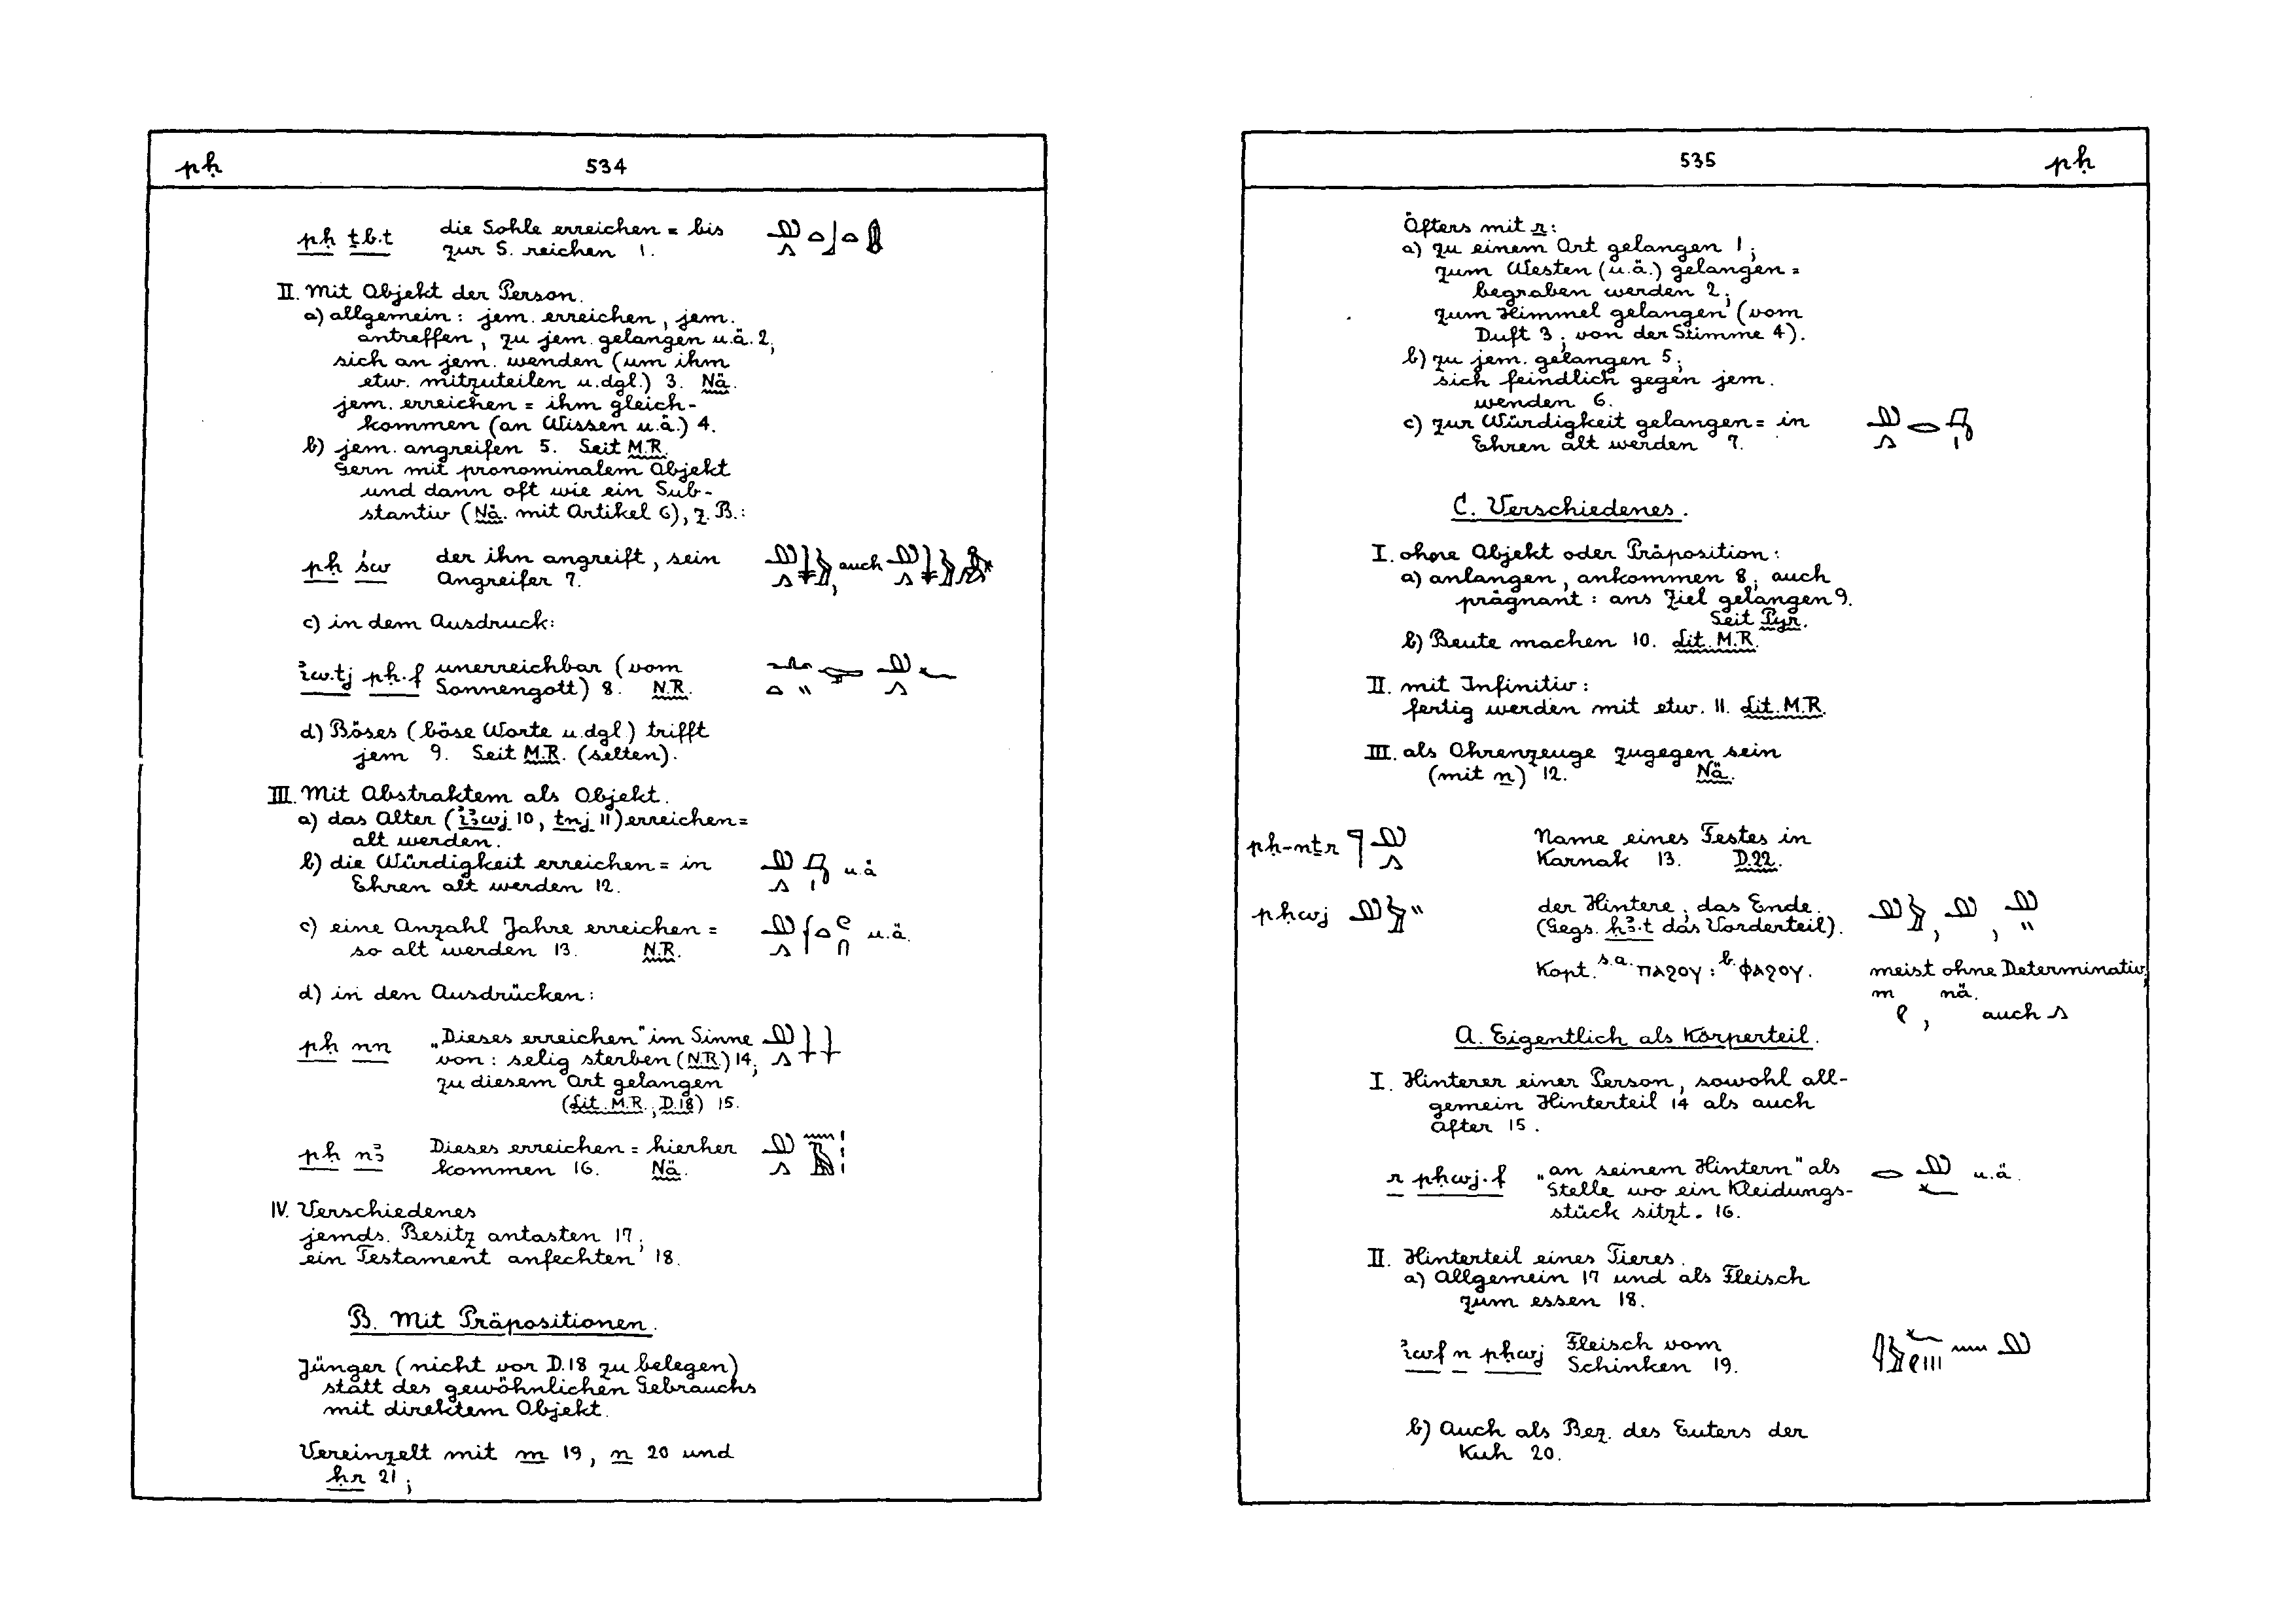 pḥ 534
pḥ ṯb.t die Sohle erreichen = bis
zur S. reichen 1.
II. Mit Objekt der Person.
a) allgemein: jem. erreichen, jem.
antreffen, zu jem. gelangen u.ä. 2;
sich an jem. wenden (um ihm
etw. mitzuteilen u.dgl.) 3. Nä.
jem. erreichen = ihm gleich-
kommen (an Wissen u.ä.) 4.
b) jem. angreifen 5. Seit M.R.
Gern mit pronominalem Objekt
und dann oft wie ein Sub-
stantiv (Nä. mit Artikel 6), z.B.:
pḥ św der ihn angreift, sein
Angreifer 7. auch
c) in dem Ausdruck:
ꞽw.tj pḥ.f unerreichbar (vom
Sonnengott) 8. N.R.
d) Böses (böse Worte u.dgl.) trifft
jem 9. Seit M.R. (selten).
III. Mit Abstraktem als Objekt.
a) das Alter (ꞽꜣwj 10, tnj 11) erreichen =
alt werden.
b) die Würdigkeit erreichen = in u.ä
Ehren alt werden 12.
c) eine Anzahl Jahre erreichen = u.ä.
so alt werden 13. N.R.
d) in den Ausdrücken:
pḥ nn „Dieses erreichen" im Sinne
von: selig sterben (N.R.) 14;
zu diesem Ort gelangen
(Lit. M.R., D.18) 15.
pḥ nꜣ Dieses erreichen = hierher
kommen 16. Nä.
IV. Verschiedenes
jemds. Besitz antasten 17;
ein Testament anfechten 18.
B. Mit Präpositionen.
Jünger (nicht vor D.18 zu belegen)
statt des gewöhnlichen Gebrauchs
mit direktem Objekt.
Vereinzelt mit m 19, n 20 und
ḥr 21;
535 pḥ
Öfters mit r:
a) zu einem Ort gelangen 1;
zum Westen (u.ä.) gelangen =
begraben werden 2;
zum Himmel gelangen (vom
Duft 3; von der Stimme 4).
b) zu jem. gelangen 5;
sich feindlich gegen jem.
wenden 6.
c) zur Würdigkeit gelangen = in
Ehren alt werden 7.
C. Verschiedenes.
I. ohne Objekt oder Präposition:
a) anlangen, ankommen 8; auch
prägnant: ans Ziel gelangen 9.
Seit Pyr.
b) Beute machen 10. Lit. M.R.
II. mit Infinitiv:
fertig werden mit etw. 11. Lit. M.R.
III. als Ohrenzeuge zugegen sein
(mit n) 12. Nä.
pḥ-nṯr Name eines Festes in
Karnak 13. D.22.
pḥwj der Hintere; das Ende.
(Gegs. ḥꜣ.t das Vorderteil).
Kopt. s.a. ⲡⲁϩⲟⲩ : b. ⲫⲁϩⲟⲩ. meist ohne Determinativ;
m nä.
auch
A. Eigentlich als Körperteil.
I. Hinterer einer Person, sowohl all-
gemein Hinterteil 14 als auch
After 15.
r pḥwj.f „an seinem Hintern" als u.ä.
Stelle wo ein Kleidungs-
stück sitzt. 16.
II. Hinterteil eines Tieres.
a) Allgemein 17 und als Fleisch
zum essen 18.
ꞽwf n pḥwj Fleisch vom
Schinken 19.
b) Auch als Bez. des Euters der
Kuh 20.